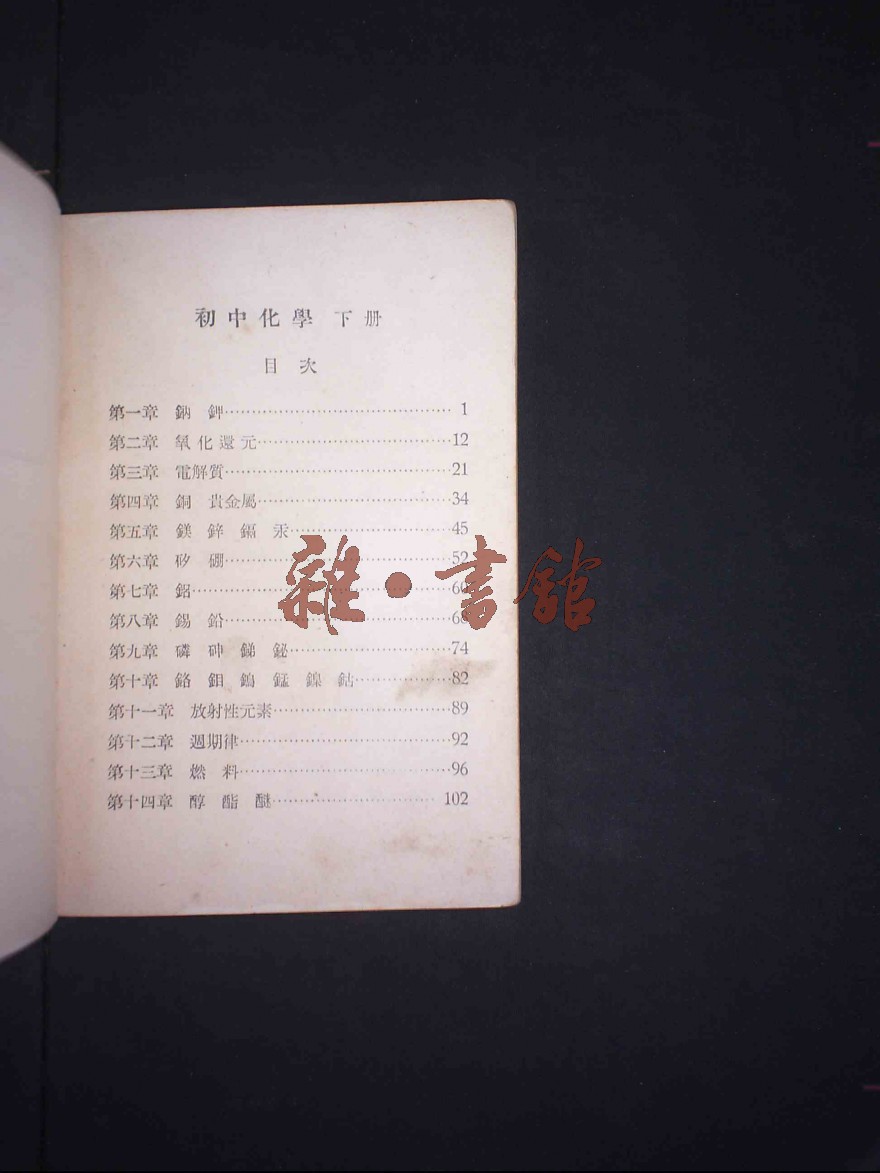 初中化學 下册
目次
第一章 鈉 鉀 1
第二章 氧化還元 12
第三章 電解質 21
第四章 銅 貴金屬 34
第五章 鎂 鋅 鎘 汞 45
第六章 矽 硼 52
第七章 鋁 60
第八章 錫 鉛 68
第九章 磷 砷 銻 鉍 74
第十章 鉻 鉬 鎢 錳 鎳 鈷 82
第十一章 放射性元素 89
第十二章 週期律 92
第十三章 燃料 96
第十四章 醇 酯 醚 102
雜·書館